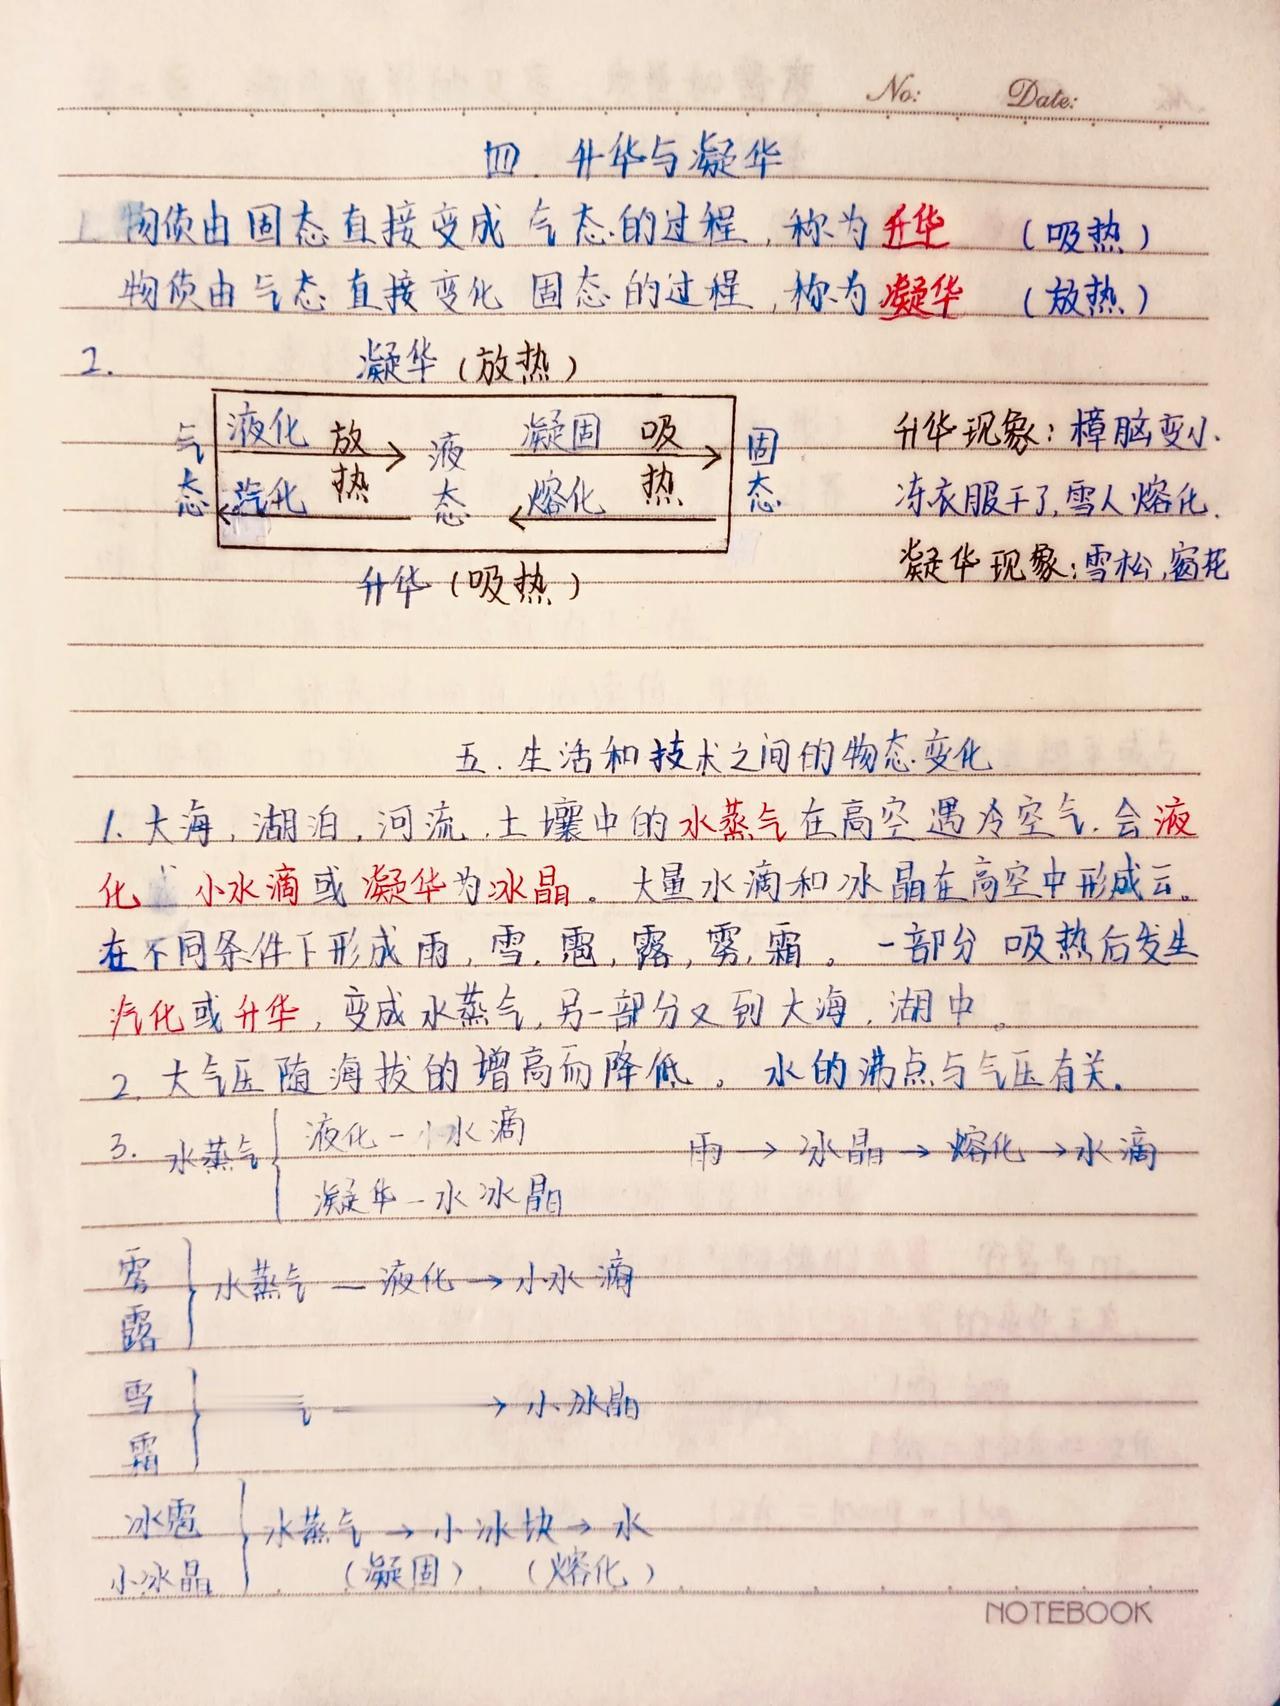 No: Date:
四. 升华与凝华
1. 物质由固态直接变成 气态的过程,称为升华 (吸热)
物质由气态直接变化 固态的过程,称为凝华 (放热)
2. 凝华(放热)
气态 液化 放热 液态 凝固 吸热 固态
汽化 熔化
升华(吸热)
升华现象:樟脑变小.
冻衣服干了,雪人熔化.
凝华现象:雪松,窗花
五.生活和技术之间的物态变化
1. 大海,湖泊,河流,土壤中的水蒸气在高空遇冷空气.会液
化 小水滴或凝华为冰晶。大量水滴和冰晶在高空中形成云。
在不同条件下形成雨,雪.雹,露,雾,霜。一部分 吸热后发生
汽化或升华,变成水蒸气,另一部分又到大海,湖中。
2. 大气压随海拔的增高而降低。水的沸点与气压有关.
3. 水蒸气{ 液化-小水滴 雨→冰晶→熔化→水滴
凝华-水冰晶
雾
露 } 水蒸气—液化→小水滴
雪
霜 } 气—→小冰晶
冰雹
小冰晶 } 水蒸气→小冰块→水
(凝固) (熔化)
NOTEBOOK